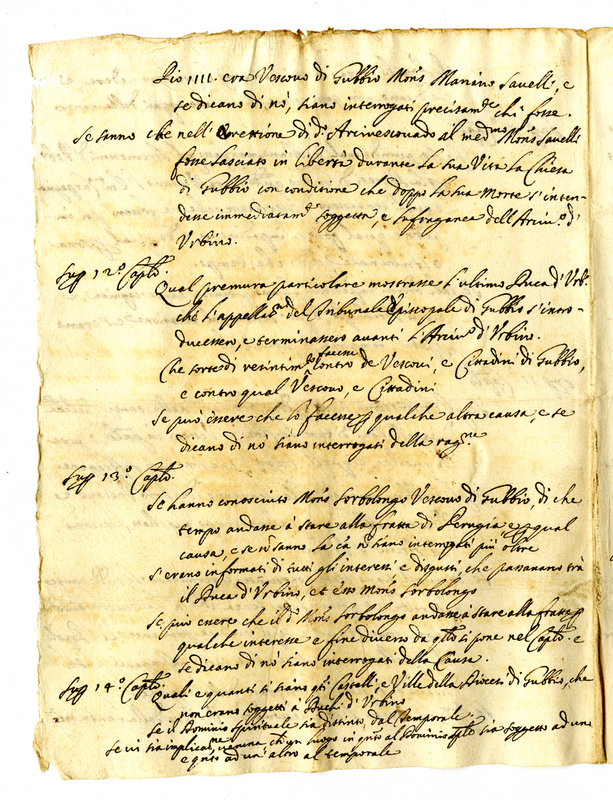 Pio IIII. era Vescovo di Gubbio Mons Mariano Savelli, e
se dicano di nò, siano interrogati precisam.e chi fosse.
Se sanno che nell'Erettione di d.o Arcivescovado al med.mo Mons Savelli
fosse lasciato in libertà durante la sua Vita la Chiesa
di Gubbio con conditione che doppo la sua Morte s'inten-
desse immediatam.e soggetta, e suffraganea dell'Arciv.o d'
Urbino.
Sup 12.o Caplo.
Qual premura particolare mostrasse l'ultimo Duca d'Urb.o
che l'appellat.ni del Tribunale Episcopale di Gubbio s'intro-
ducessero, e terminassero avanti l'Arciv.o d'Urbino.
Che sorte di risintim.to facesse contro de Vescovi, e Cittadini di Gubbio,
e contro qual Vescovo, e Cittadini
Se può essere che lo facesse p qualche altra causa, e se
dicano di nò siano interrogati della rag.ne
Sup 13.o Caplo.
Se hanno conosciuto Mons Sorbolongo Vescovo di Gubbio, di che
tempo andasse à stare alla fratta di Perugia e p qual
causa, e se sanno la ca nò siano interrogati più oltre
s'erano informati di tutti gli interessi e disgusti, che passavano trà
il Duca d'Urbino, et esso Mons Sorbolongo
Se può essere che il d.o Mons Sorbolongo andasse à stare alla fratta p
qualche interesse e fine diverso da qllo si pone nel Caplo. e
se dicano di nò siano interrogati della Causa.
Sup 14.o Caplo.
Quali e quanti si siano gli Castelli, e Ville della Diocesi di Gubbio, che
non erano soggetti à Duchi d'Urbino
Se il Dominio spirituale sia distinto dal Temporale
Se vi sia implical.ne veruna ch'un luogo in q.nto al Dominio sp.le sia soggetto ad uno
e q.nto ad un'altro al temporale